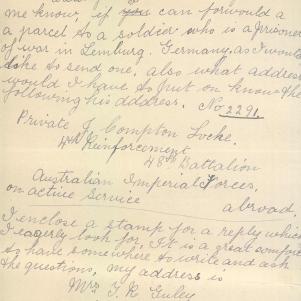 me know, if you can forwould a
a parcel to a soldier who is a prisoner
of war in Lemburg. Germany, as I would
like to send one, also what address
would I have to put on know the
following his address. No 2291
Private J Compton Locke.
4th Reinforcement
48th Battalion
Australian Imperial Forces,
on active Service abroad,
I enclose a stamp for a reply which
I eagerly look for, It is a great comfort
to have somewhere to write and ask
the questions, my address is
Mrs J. R